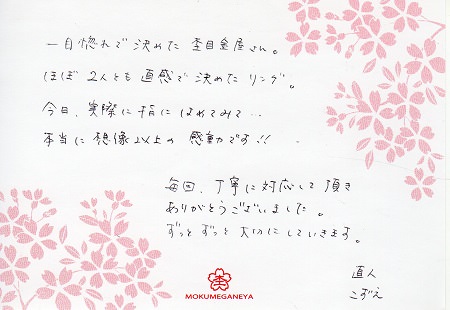 一目惚れで決めた 杢目金屋さん。
ほぼ 2人とも 直感で 決めた リング。
今日、実際に 指に はめてみて…
本当に 想像以上の 感動です!!
毎回、丁寧に 対応して 頂き
ありがとうございました。
ずっと ずっと 大切にしていきます。
直人
こずえ
MOKUMEGANEYA